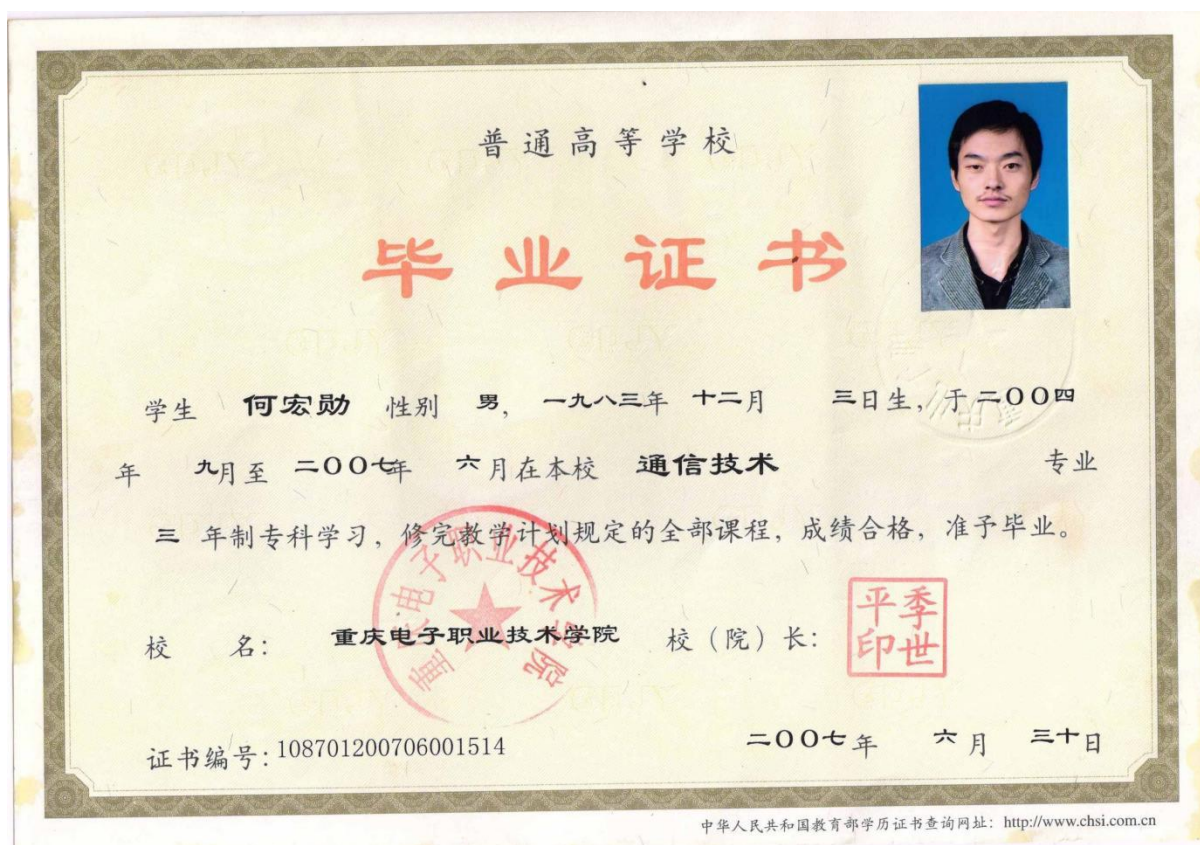 普通高等学校
毕业证书
学生 何宏勋 性别 男, 一九八三年 十二月 三日生, 于二〇〇四
年 九月至 二〇〇七年 六月在本校 通信技术 专业
三 年制专科学习, 修完教学计划规定的全部课程, 成绩合格, 准予毕业。
校 名: 重庆电子职业技术学院 校（院）长:
季世平印
重庆电子职业技术学院
证书编号: 108701200706001514 二〇〇七年 六月 三十日
中华人民共和国教育部学历证书查询网址: http://www.chsi.com.cn